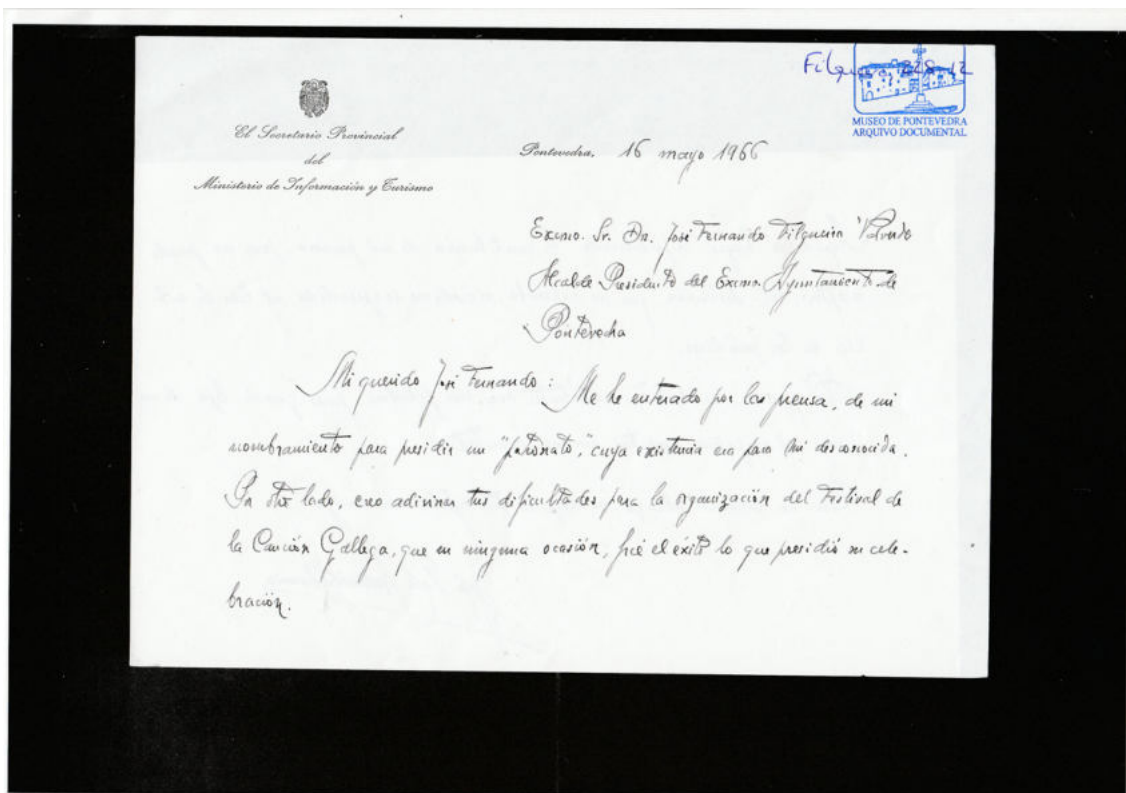 Filgueira 228-12
MUSEO DE PONTEVEDRA
ARQUIVO DOCUMENTAL
El Secretario Provincial
del
Ministerio de Información y Turismo
Pontevedra, 16 mayo 1966
Excmo. Sr. Dn. José Fernando Filgueira Valverde
Alcalde Presidente del Excmo. Ayuntamiento de
Pontevedra
Mi querido José Fernando: Me he enterado por la prensa, de mi
nombramiento para presidir un "patronato", cuya existencia era para mi desconocida.
Por otro lado, creo adivinar tus dificultades para la organización del Festival de
la Canción Gallega, que en ninguna ocasión, fué el éxito lo que presidió su cele-
bración.